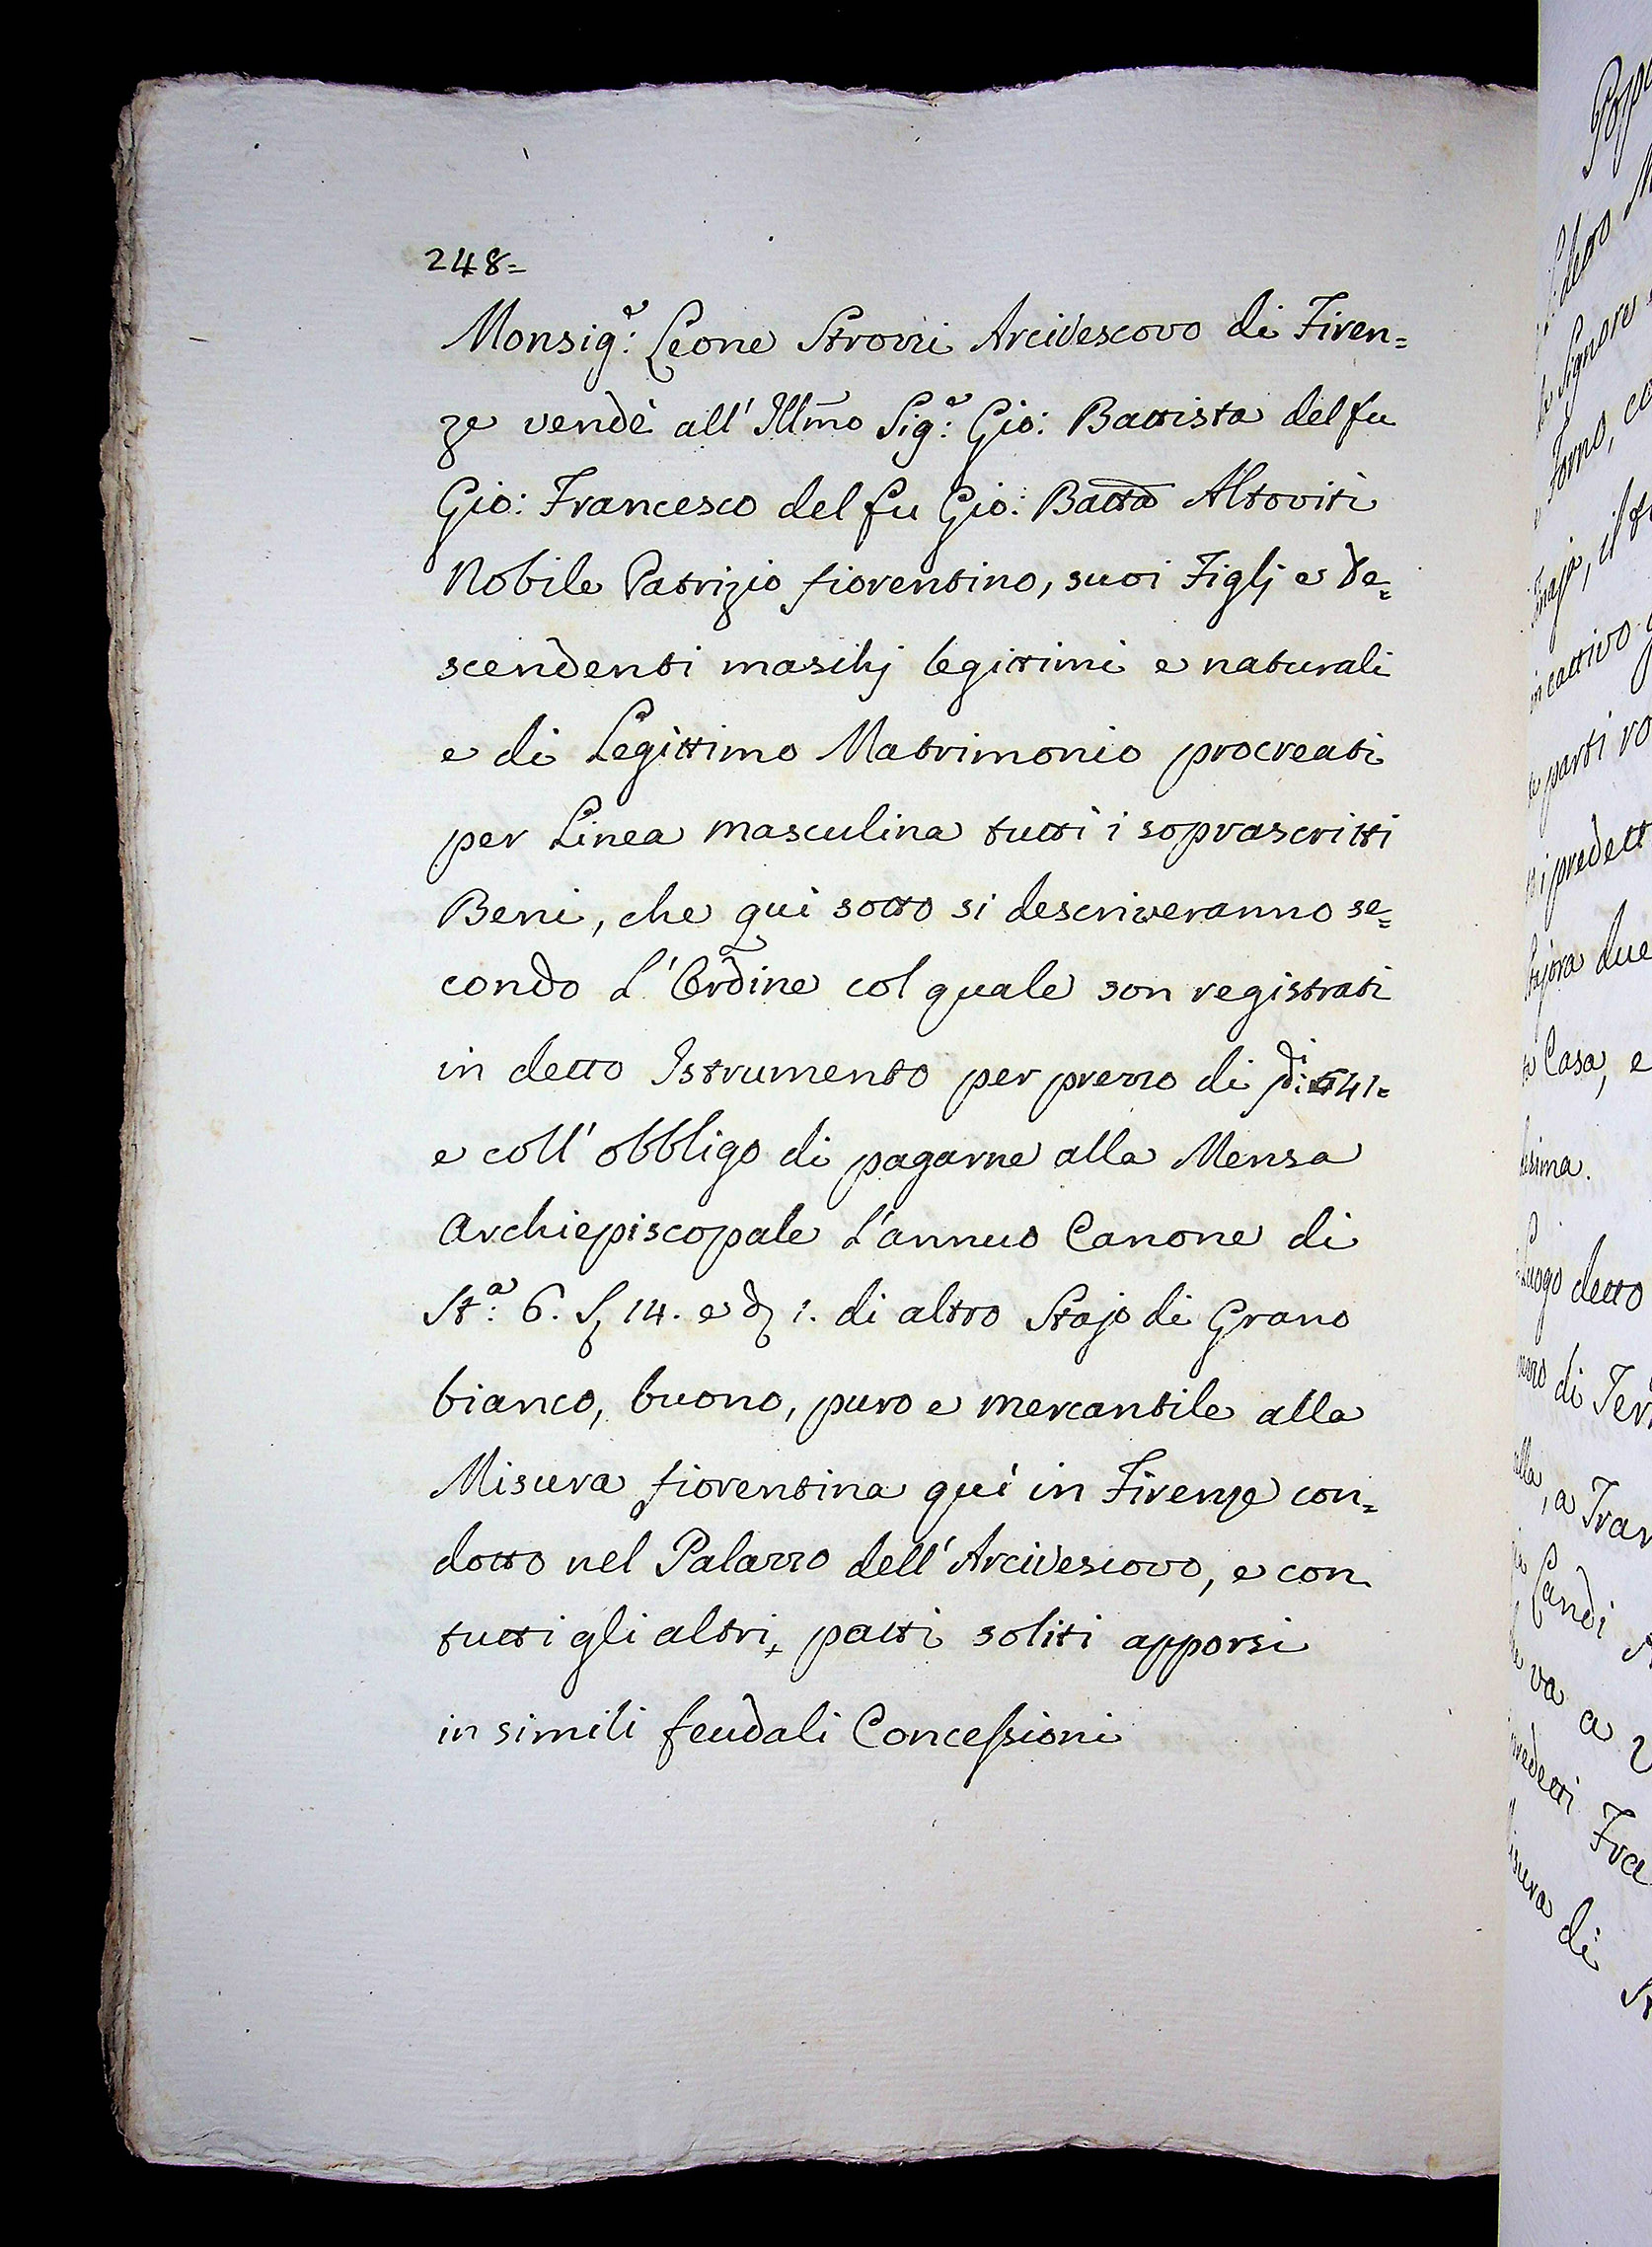 248=
Monsig.r Leone Strozzi Arcivescovo di Firen=
ze vendè all' Illmo Sig.r Gio: Battista del fu
Gio: Francesco del fu Gio: Batta Altoviti
Nobile Patrizio fiorentino, suoi Figlj e De=
scendenti maschj legittimi e naturali
e di Legittimo Matrimonio procreati
per Linea masculina tutti i soprascritti
Beni, che qui sotto si descriveranno se=
condo L'Ordine col quale son registrati
in detto Istrumento per prezzo di
e coll' obbligo di pagarne alla Mensa
Archiepiscopale L'annuo Canone di
St.a 6. S 14. e d 1. di altro Stajo di Grano
bianco, buono, puro e mercantile alla
Misura fiorentina quì in Firenze con=
dotto nel Palazzo dell' Arcivescovo, e con
tutti gli altri patti soliti apporsi
in simili feudali Concessioni
detto
Signore
Forno,
il
in cattivo
parti
i predett
due
Casa, e
Luogo detto
di
, a
Landi
va a
di